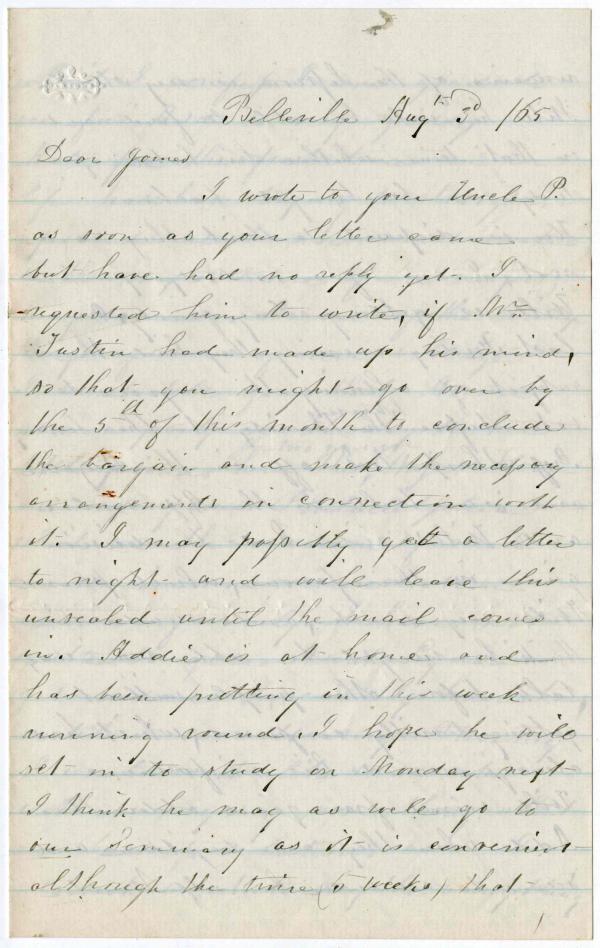 Belleville Aug 3d /65
Dear James
I wrote to your Uncle P.
as soon as your letter came
but have had no reply yet. I
requested him to write, if Mr.
Justin had made up his mind,
so that you might go over by
the 5th of this month to conclude
the bargain and make the necessary
arrangements in connection with
it. I may possibly get a letter
to night and will leave this
unsealed until the mail comes
in. Addie is at home and
has been putting in this week
running round. I hope he will
set in to study on Monday next
I think he may as well go to
our Seminary as it is convenient
although the time (5 weeks) that